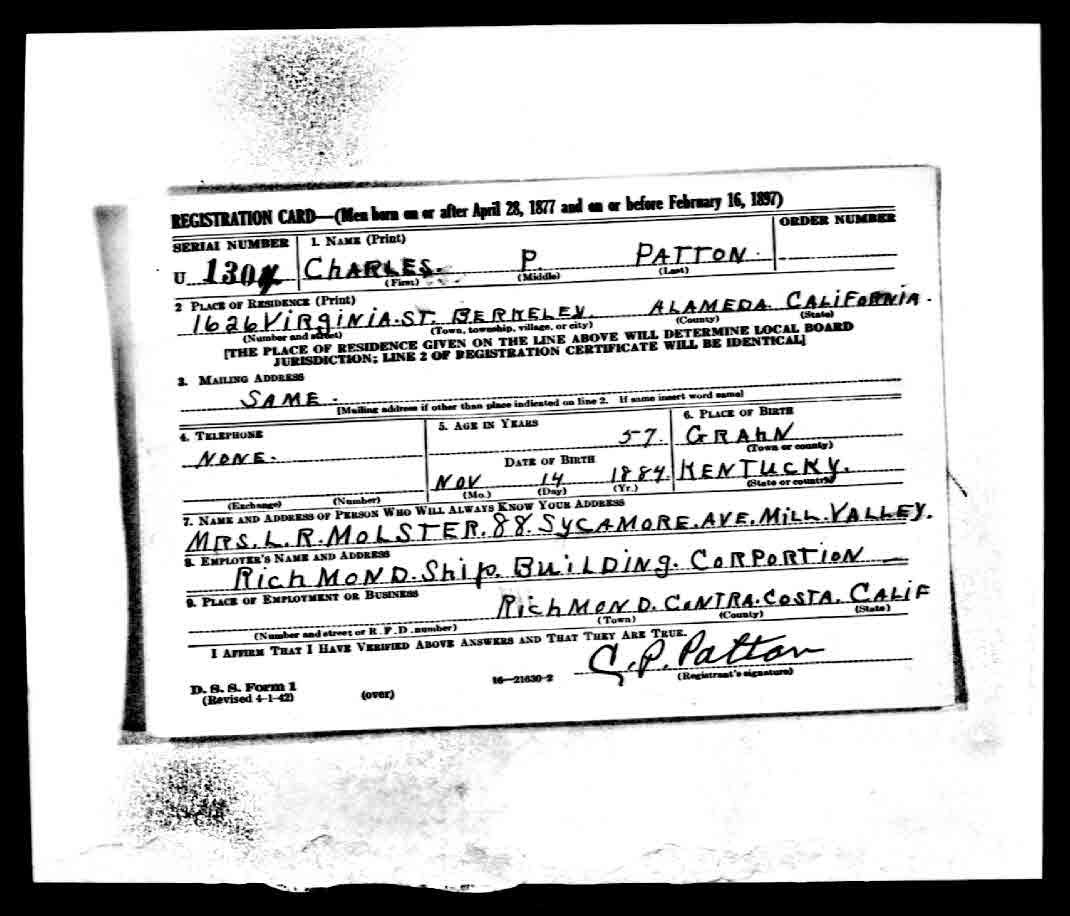 REGISTRATION CARD—(Men born on or after April 28, 1877 and on or before February 16, 1897)
SERIAL NUMBER 1. NAME (Print) ORDER NUMBER
U 1304 CHARLES. P. PATTON.
(First) (Middle) (Last)
2 PLACE OF RESIDENCE (Print)
1626 VIRGINIA. ST. BERKELEY. ALAMEDA. CALIFORNIA.
(Number and street) (Town, township, village, or city) (County) (State)
[THE PLACE OF RESIDENCE GIVEN ON THE LINE ABOVE WILL DETERMINE LOCAL BOARD
JURISDICTION; LINE 2 OF REGISTRATION CERTIFICATE WILL BE IDENTICAL]
3. MAILING ADDRESS
SAME.
[Mailing address if other than place indicated on line 2. If same insert word same]
4. TELEPHONE 5. AGE IN YEARS 6. PLACE OF BIRTH
NONE. 57. GRAHN
(Town or county)
DATE OF BIRTH
NOV 14 1884. KENTUCKY.
(Exchange) (Number) (Mo.) (Day) (Yr.) (State or country)
7. NAME AND ADDRESS OF PERSON WHO WILL ALWAYS KNOW YOUR ADDRESS
MRS. L. R. MOLSTER. 88. SYCAMORE. AVE. MILL. VALLEY.
8. EMPLOYER'S NAME AND ADDRESS
RICHMOND. SHIP. BUILDING. CORPORTION
9. PLACE OF EMPLOYMENT OR BUSINESS
RICHMOND. CONTRA. COSTA. CALIF
(Number and street or R. F. D. number) (Town) (County) (State)
I AFFIRM THAT I HAVE VERIFIED ABOVE ANSWERS AND THAT THEY ARE TRUE.
C. P. Patton
D. S. S. Form 1 (over) 16—21630-2 (Registrant's signature)
(Revised 4-1-42)